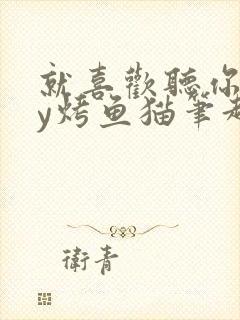 就喜歡聽你
y烤鱼猫筆
衛青